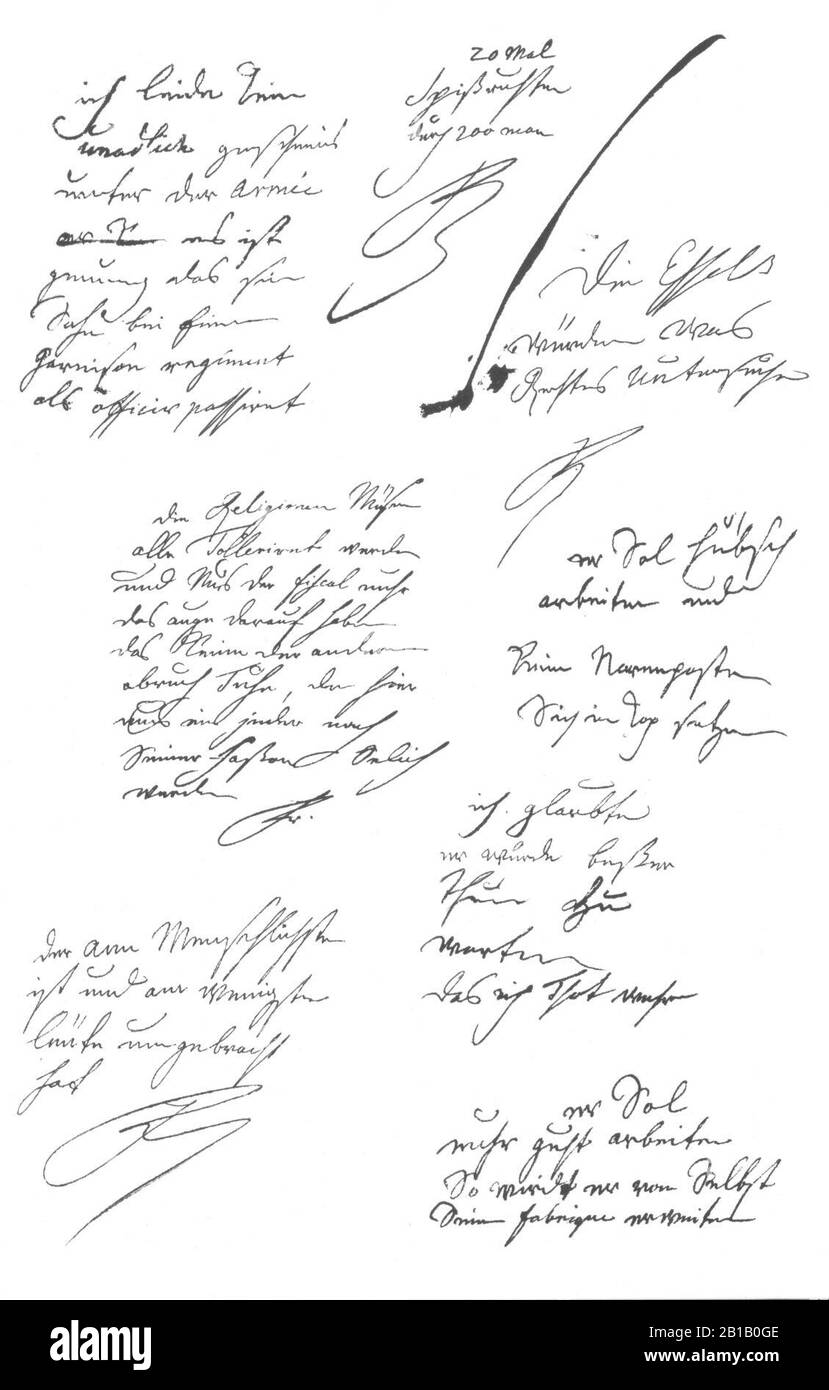 ich leide Kein
unadlich geschmeis
unter der Armée
es ist
genung das sein
Sohn bei einem
garnison regiment
als officir passiret
20 Mal
Spißruhten
durch 200 man
Die Essels
würden was
Rechtes Untersuchen
die Religionen Müsen
alle Tolleriret werden
und Mus der fiscal nuhr
das auge darauf haben
das Keine der anderen
abruch Tuhe, den hier
mus ein jeder nach
Seiner Faßon Selich
werden
Fr.
er Sol hübsch
arbeiten und
Keine Narrenpossen
Sich in Kop setzen
ich glaubte
er würde beßer
thun zu
warten
das ich Thot wehre
der am Menschlichsten
ist und am wenigsten
leüte umgebracht
hat
er Sol
nuhr guht arbeiten
So wirdt er von Selbst
Seine fabrique erweitern
alamy
Image ID: 2B1B0GE
www.alamy.com